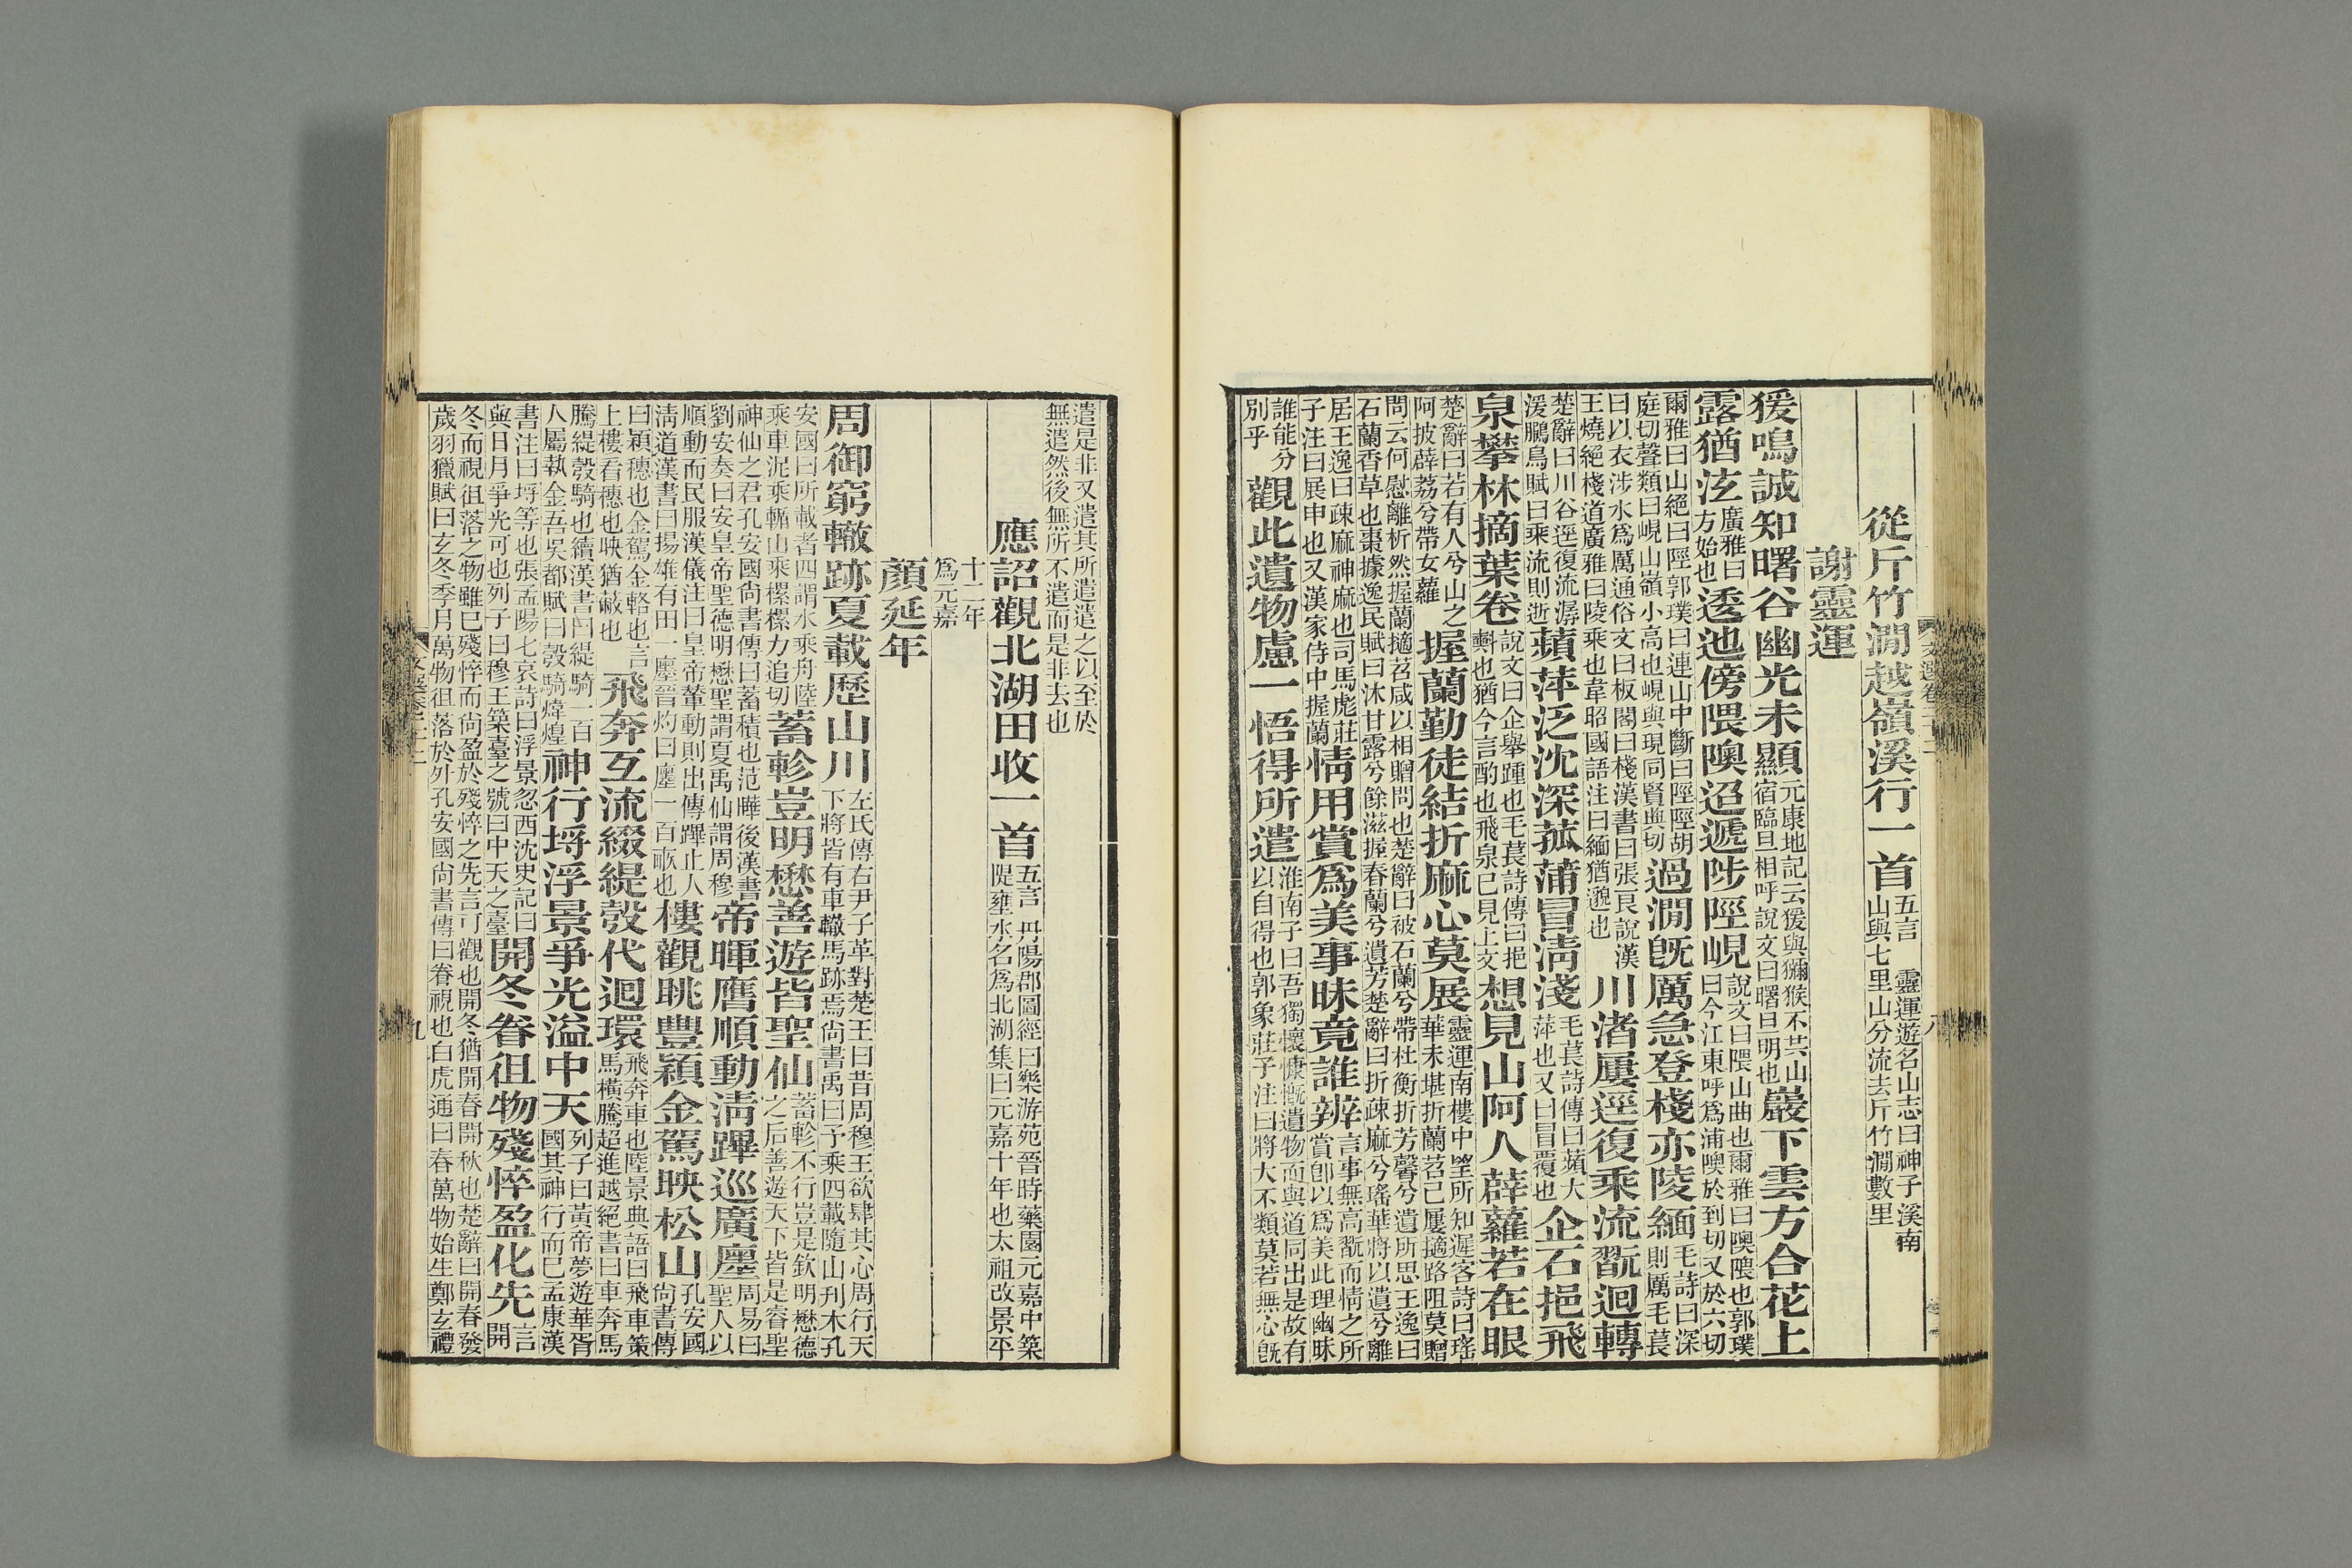 從斤竹澗越嶺溪行一首五言靈運遊名山志曰神子溪南山與七里山分流去斤竹澗數里
謝靈運
猨鳴誠知曙谷幽光未顯元康地記云猨與獼猴不共山宿臨旦相呼說文曰曙旦明也巖下雲方合花上
露猶泫廣雅曰方始也逶迆傍隈隩迢遞陟陘峴說文曰隈山曲也爾雅曰隩隈也郭璞曰今江東呼爲浦隩於到切又於六切
爾雅曰山絕曰陘郭璞曰連山中斷曰陘陘胡庭切聲類曰峴山嶺小高也峴與現同賢典切過澗旣厲急登棧亦陵緬毛詩曰深則厲毛萇
曰以衣涉水爲厲通俗文曰板閣曰棧漢書曰張良說漢王燒絕棧道廣雅曰陵乘也韋昭國語注曰緬猶邈也川渚屢逕復乘流翫迴轉
楚辭曰川谷逕復流潺湲鵩鳥賦曰乘流則逝蘋萍泛沈深菰蒲冒清淺毛萇詩傳曰蘋大萍也又曰冒覆也企石挹飛
泉攀林摘葉卷說文曰企舉踵也毛萇詩傳曰挹㪺也猶今言酌也飛泉已見上文想見山阿人薜蘿若在眼
楚辭曰若有人兮山之阿披薜荔兮帶女蘿握蘭勤徒結折麻心莫展靈運南樓中望所知遲客詩曰瑤華未堪折蘭苕已屢擿路阻莫贈
問云何慰離析然握蘭擿苕咸以相贈問也楚辭曰被石蘭兮帶杜衡折芳馨兮遺所思王逸曰石蘭香草也棗據逸民賦曰沐甘露兮餘滋握春蘭兮遺芳楚辭曰折疎麻兮瑤華將以遺兮離
居王逸曰疎麻神麻也司馬彪莊子注曰展申也又漢家侍中握蘭情用賞爲美事昧竟誰辨言事無高翫而情之所賞卽以爲美此理幽昧
誰能分別乎觀此遺物慮一悟得所遣淮南子曰吾獨懷慷慨遺物而與道同出是故有以自得也郭象莊子注曰將大不類莫若無心旣
遣是非又遣其所遣遣之以至於無遣然後無所不遣而是非去也
應詔觀北湖田收一首五言丹陽郡圖經曰樂游苑晉時藥園元嘉中築隄壅水名爲北湖集曰元嘉十年也太祖改景平
十二年爲元嘉
顏延年
周御窮轍跡夏載歷山川左氏傳右尹子革對楚王曰昔周穆王欲肆其心周行天下將皆有車轍馬跡焉尙書禹曰予乘四載隨山刊木孔
安國曰所載者四謂水乘舟陸乘車泥乘輴山乘樏樏力追切蓄軫豈明懋善遊皆聖仙蓄軫不行豈是欽明懋德之后善遊天下皆是睿聖
神仙之君孔安國尙書傳曰蓄積也范曄後漢書劉安奏曰安皇帝聖德明懋聖謂夏禹仙謂周穆帝暉膺順動清蹕巡廣廛周易曰聖人以
順動而民服漢儀注曰皇帝輦動則出傳蹕止人清道漢書曰揚雄有田一廛晉灼曰廛一百畝也樓觀眺豐穎金駕映松山孔安國尙書傳
曰穎穗也金駕金輅也言上樓看穗也映猶蔽也飛奔互流綴緹彀代迴環飛奔車也陸景典語曰飛車策馬橫騰超進越絕書曰車奔馬
騰緹彀騎也續漢書曰緹騎一百人屬執金吾吳都賦曰彀騎煒煌神行埒浮景爭光溢中天列子曰黃帝夢遊華胥國其神行而已孟康漢
書注曰埒等也張孟陽七哀詩曰浮景忽西沈史記曰與日月爭光可也列子曰穆王築臺之號曰中天之臺開冬眷徂物殘悴盈化先言開
冬而視徂落之物雖已殘悴而尙盈於殘悴之先言可觀也開冬猶開春開秋也楚辭曰開春發歲羽獵賦曰玄冬季月萬物徂落於外孔安國尙書傳曰眷視也白虎通曰春萬物始生鄭玄禮
九